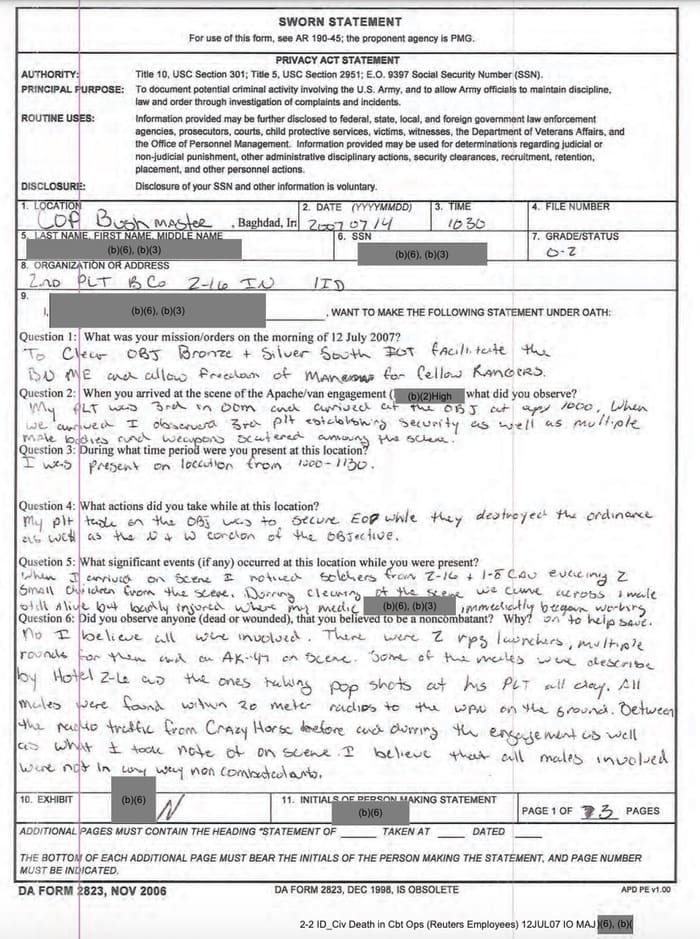 SWORN STATEMENT
For use of this form, see AR 190-45; the proponent agency is PMG.
PRIVACY ACT STATEMENT
AUTHORITY: Title 10, USC Section 301; Title 5, USC Section 2951; E.O. 9397 Social Security Number (SSN).
PRINCIPAL PURPOSE: To document potential criminal activity involving the U.S. Army, and to allow Army officials to maintain discipline,
law and order through investigation of complaints and incidents.
ROUTINE USES: Information provided may be further disclosed to federal, state, local, and foreign government law enforcement
agencies, prosecutors, courts, child protective services, victims, witnesses, the Department of Veterans Affairs, and
the Office of Personnel Management. Information provided may be used for determinations regarding judicial or
non-judicial punishment, other administrative disciplinary actions, security clearances, recruitment, retention,
placement, and other personnel actions.
DISCLOSURE: Disclosure of your SSN and other information is voluntary.
1. LOCATION 2. DATE (YYYYMMDD) 3. TIME 4. FILE NUMBER
COP Bushmaster , Baghdad, Ir 20070714 1030
5. LAST NAME, FIRST NAME, MIDDLE NAME 6. SSN 7. GRADE/STATUS
(b)(6), (b)(3) (b)(6), (b)(3) O-2
8. ORGANIZATION OR ADDRESS
2ND PLT B Co 2-16 IN 1ID
9.
I, (b)(6), (b)(3) , WANT TO MAKE THE FOLLOWING STATEMENT UNDER OATH:
Question 1: What was your mission/orders on the morning of 12 July 2007?
To Clear OBJ Bronze + Silver South IOT facilitate the
BN ME and allow freedom of for fellow RANGERS.
Question 2: When you arrived at the scene of the Apache/van engagement ( (b)(2)High what did you observe?
My PLT was 3rd in OOM and arrived at the OBJ at apx 1000. When
we arrived I observed 3rd plt establishing security as well as multiple
male bodies and weapons scatered among the scene.
Question 3: During what time period were you present at this location?
I was present on location from 1000-1130.
Question 4: What actions did you take while at this location?
My plt task on the OBJ was to secure EOD while they destroyed the ordinance
as well as the N + W cordon of the OBJective.
Qusetion 5: What significant events (if any) occurred at this location while you were present?
When I arrived on scene I noticed soldiers from 2-16 + 1-8 CAV evacing 2
small children from the scene. Durring clearing of the scene we came across 1 male
still alive but badly injured where my medic (b)(6), (b)(3) immediatly began working
Question 6: Did you observe anyone (dead or wounded), that you believed to be a noncombatant? Why? on to help save.
No I believe all were involved. There were 2 rpg launchers, multiple
rounds for them and an AK-47 on scene. Some of the males were describe
by Hotel 26 as the ones taking pop shots at his PLT all day. All
males were found within 20 meter radios to the WPN on the ground. Between
the radio traffic from Crazy Horse before and durring the engagement as well
as what I took note of on scene. I believe that all males involved
were not in any way non
10. EXHIBIT (b)(6) N 11. INITIALS OF PERSON MAKING STATEMENT (b)(6) PAGE 1 OF 3 PAGES
ADDITIONAL PAGES MUST CONTAIN THE HEADING "STATEMENT OF TAKEN AT DATED
THE BOTTOM OF EACH ADDITIONAL PAGE MUST BEAR THE INITIALS OF THE PERSON MAKING THE STATEMENT, AND PAGE NUMBER
MUST BE INDICATED.
DA FORM 2823, NOV 2006 DA FORM 2823, DEC 1998, IS OBSOLETE APD PE v1.00
2-2 ID_Civ Death in Cbt Ops (Reuters Employees) 12JUL07 IO MAJ (6), (b)(